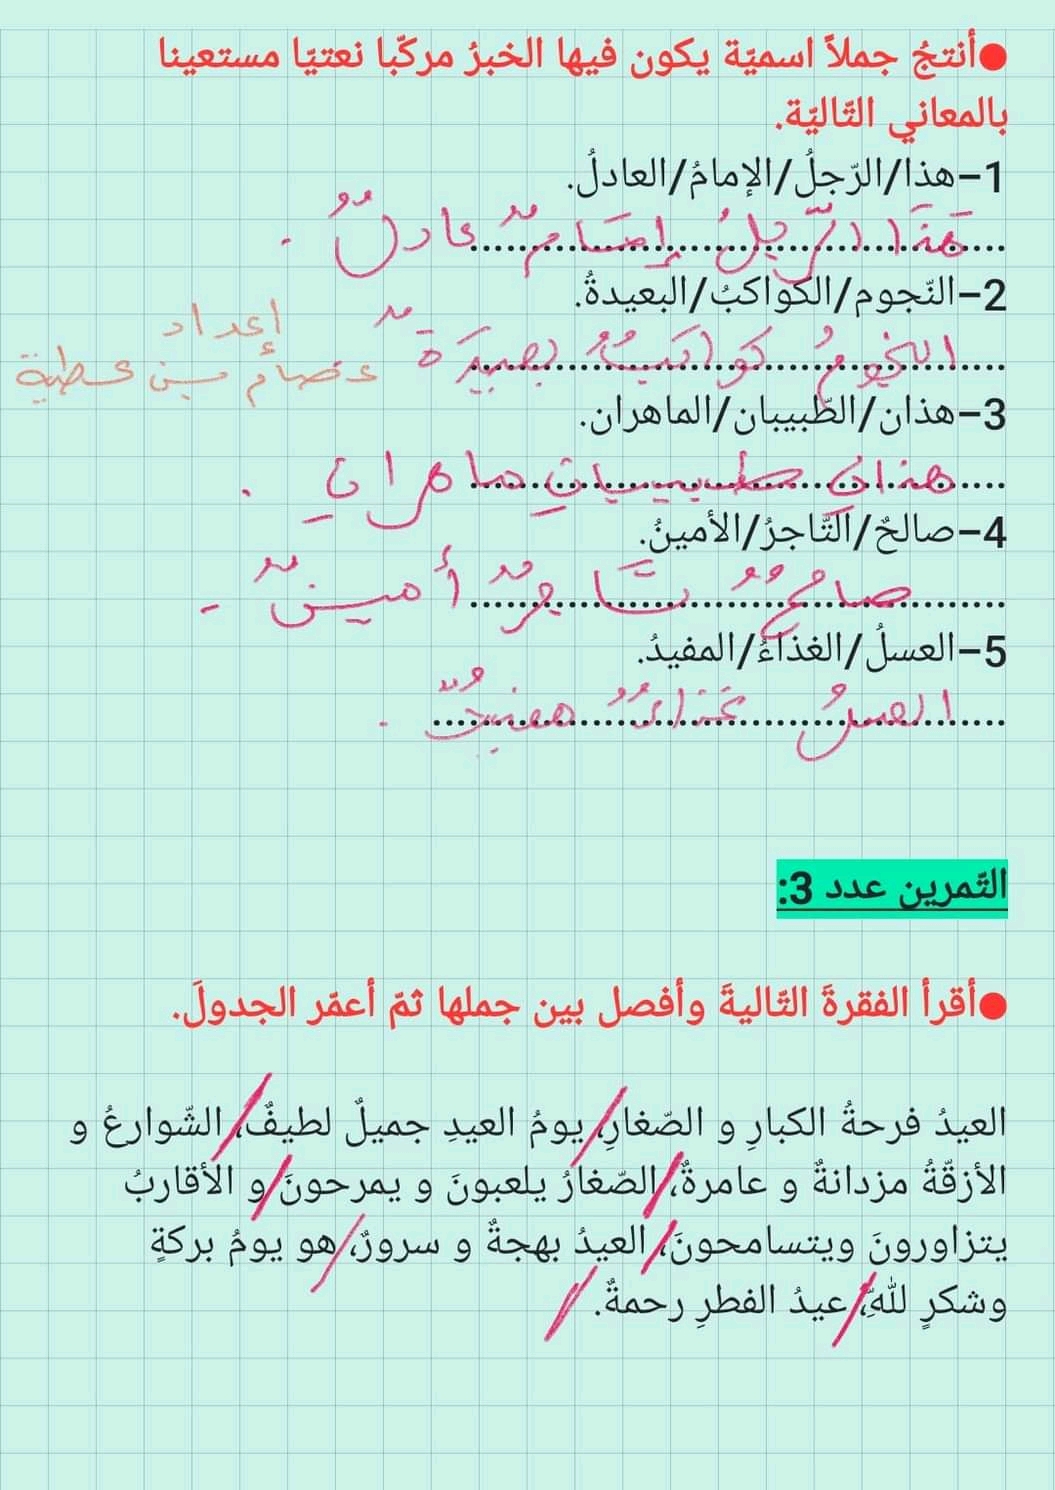 ●أنتجُ جملاً اسميّة يكون فيها الخبرُ مركّبا نعتيّا مستعينا
بالمعاني التّاليّة.
1–هذا/الرّجلُ/الإمامُ/العادلُ.
هَذَا الرَّجلُ إمَامٌ عادلٌ .
2–النّجوم/الكواكبُ/البعيدةُ.
النجومُ كواكبٌ بعيدَةٌ
إعداد
عصام بن عطية
3–هذان/الطّبيبان/الماهران.
هذانِ طبيبانِ ماهرانِ .
4–صالحٌ/التّاجرُ/الأمينُ.
صالحٌ تَاجرٌ أمينٌ .
5–العسلُ/الغذاءُ/المفيدُ.
العسلُ غذاءٌ مفيدٌ .
التّمرين عدد 3:
●أقرأ الفقرةَ التّاليةَ وأفصل بين جملها ثمّ أعمّر الجدولَ.
العيدُ فرحةُ الكبارِ و الصّغارِ،/ يومُ العيدِ جميلٌ لطيفٌ،/ الشّوارعُ و
الأزقّةُ مزدانةٌ و عامرةٌ،/ الصّغارُ يلعبونَ و يمرحونَ/ و الأقاربُ
يتزاورونَ ويتسامحونَ،/ العيدُ بهجةٌ و سرورٌ،/ هو يومُ بركةٍ
وشكرٍ للّهِ،/ عيدُ الفطرِ رحمةٌ. /